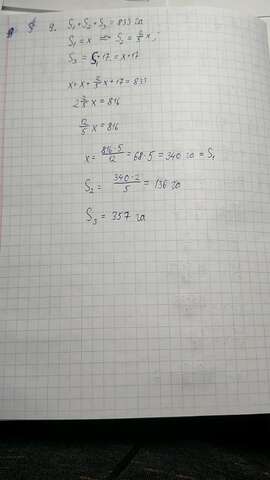 9. S₁+S₂+S₃ = 833 га
S₁ = x ⇒ S₂ = 2/5 x;
S₃ = S₁+17 = x+17
x + x + 2/5 x + 17 = 833
2 2/5 x = 816
12/5 x = 816
x = 816·5/12 = 68·5 = 340 га = S₁
S₂ = 340·2/5 = 136 га
S₃ = 357 га